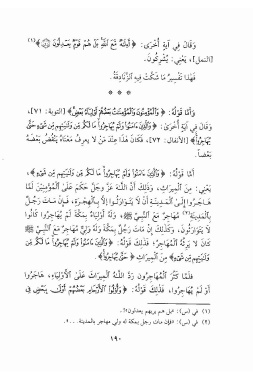 وَقَالَ فِي آيَةٍ أُخْرَى: ﴿أَءِلَٰهٌ مَّعَ ٱللَّهِ بَلْ هُمْ قَوْمٌ يَعْدِلُونَ﴾(١)
[النمل]، يَعْنِي: يُشْرِكُونَ.
فَهَذَا تَفْسِيرُ مَا شَكَّتْ فِيهِ الزَّنَادِقَةُ.
* * *
وَأَمَّا قَوْلُهُ: ﴿وَٱلْمُؤْمِنُونَ وَٱلْمُؤْمِنَٰتُ بَعْضُهُمْ أَوْلِيَآءُ بَعْضٍ﴾ [التوبة: ٧١]،
وَقَالَ فِي آيَةٍ أُخْرَى: ﴿وَٱلَّذِينَ ءَامَنُوا۟ وَلَمْ يُهَاجِرُوا۟ مَا لَكُم مِّن وَلَٰيَتِهِم مِّن شَىْءٍ حَتَّىٰ
يُهَاجِرُوا۟﴾ [الأنفال: ٧٢]، فَكَانَ هَذَا عِنْدَ مَنْ لَا يَعْرِفُ مَعْنَاهُ يَنْقُضُ بَعْضُهُ
بَعْضاً.
أَمَّا قَوْلُهُ: ﴿وَٱلَّذِينَ ءَامَنُوا۟ وَلَمْ يُهَاجِرُوا۟ مَا لَكُم مِّن وَلَٰيَتِهِم مِّن شَىْءٍ﴾،
يَعْنِي: مِنَ الْمِيرَاثِ، وَذَلِكَ أَنَّ اللَّهَ عَزَّ وَجَلَّ حَكَمَ عَلَى الْمُؤْمِنِينَ لَمَّا
هَاجَرُوا إِلَى الْمَدِينَةِ أَنْ لَا يَتَوَارَثُوا إِلَّا بِالْهِجْرَةِ، فَإِنْ مَاتَ رَجُلٌ
بِالْمَدِينَةِ(٢) مُهَاجِرٌ مَعَ النَّبِيِّ ﷺ، وَلَهُ أَوْلِيَاءُ بِمَكَّةَ لَمْ يُهَاجِرُوا كَانُوا
لَا يَتَوَارَثُونَ، وَكَذَلِكَ إِنْ مَاتَ رَجُلٌ بِمَكَّةَ وَلَهُ وَلِيٌّ مُهَاجِرٌ مَعَ النَّبِيِّ ﷺ
كَانَ لَا يَرِثُهُ الْمُهَاجِرُ، فَذَلِكَ قَوْلُهُ: ﴿وَٱلَّذِينَ ءَامَنُوا۟ وَلَمْ يُهَاجِرُوا۟ مَا لَكُم مِّن
وَلَٰيَتِهِم مِّن شَىْءٍ﴾ مِنَ الْمِيرَاثِ ﴿حَتَّىٰ يُهَاجِرُوا۟﴾.
فَلَمَّا كَثُرَ الْمُهَاجِرُونَ رَدَّ اللَّهُ الْمِيرَاثَ عَلَى الْأَوْلِيَاءِ، هَاجَرُوا
أَوْ لَمْ يُهَاجِرُوا، فَذَلِكَ قَوْلُهُ: ﴿وَأُو۟لُوا۟ ٱلْأَرْحَامِ بَعْضُهُمْ أَوْلَىٰ بِبَعْضٍ فِى
(١) في (س): «بل هم بربهم يعدلون»!.
(٢) في (س): «فإن مات رجل بمكة له ولي مهاجر بالمدينة. . .».
١٩٠